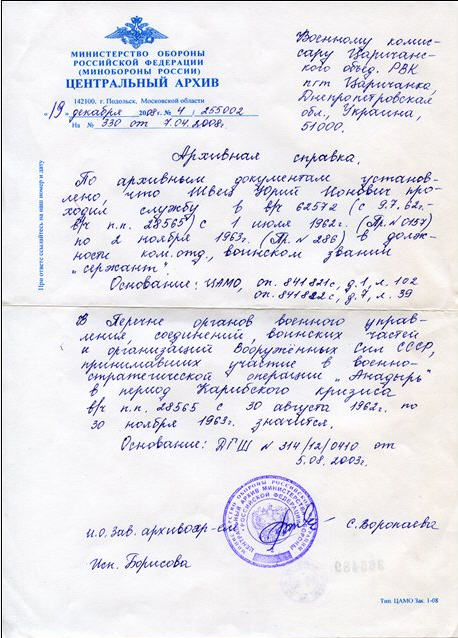 МИНИСТЕРСТВО ОБОРОНЫ
РОССИЙСКОЙ ФЕДЕРАЦИИ
(МИНОБОРОНЫ РОССИИ)
ЦЕНТРАЛЬНЫЙ АРХИВ
142100, г. Подольск, Московской области
"19" декабря 2008 г. № 4/255002
На № 330 от 7.04.2008г.
Военному комис-
сару Царичанс-
кого объед. РВК
пгт Царичанка,
Днепропетровская
обл., Украина,
51000.
При ответе ссылайтесь на наш номер и дату
Архивная справка.
По архивным документам установ-
лено, что Швец Юрий Ионович про-
ходил службу в в/ч 62572 (с 9.7.62г.-
в/ч п.п. 28565) с 1 июля 1962г. (Пр. № 0137)
по 2 ноября 1963г. (Пр. № 286) в долж-
ности ком. отд., воинском звании
"сержант".
Основание: ЦАМО, оп. 841821с, д.1, л. 102
оп. 841822с, д. 7, л. 39
В Перечне органов военного управ-
ления, соединений, воинских частей
и организаций Вооружённых Сил СССР,
принимавших участие в военно-
стратегической операции "Анадырь"
в период Карибского кризиса
в/ч п.п. 28565 с 30 августа 1962г. по
30 ноября 1963г. значится.
Основание: ДГШ № 314/12/0410 от
5.08.2003г.
ЦЕНТРАЛЬНЫЙ АРХИВ МИНИСТЕРСТВА ОБОРОНЫ РОССИЙСКОЙ ФЕДЕРАЦИИ
и.о. зав. архивохр-ем С. Воропаева
Исп. Борисова
Тип. ЦАМО Зак. 1-08